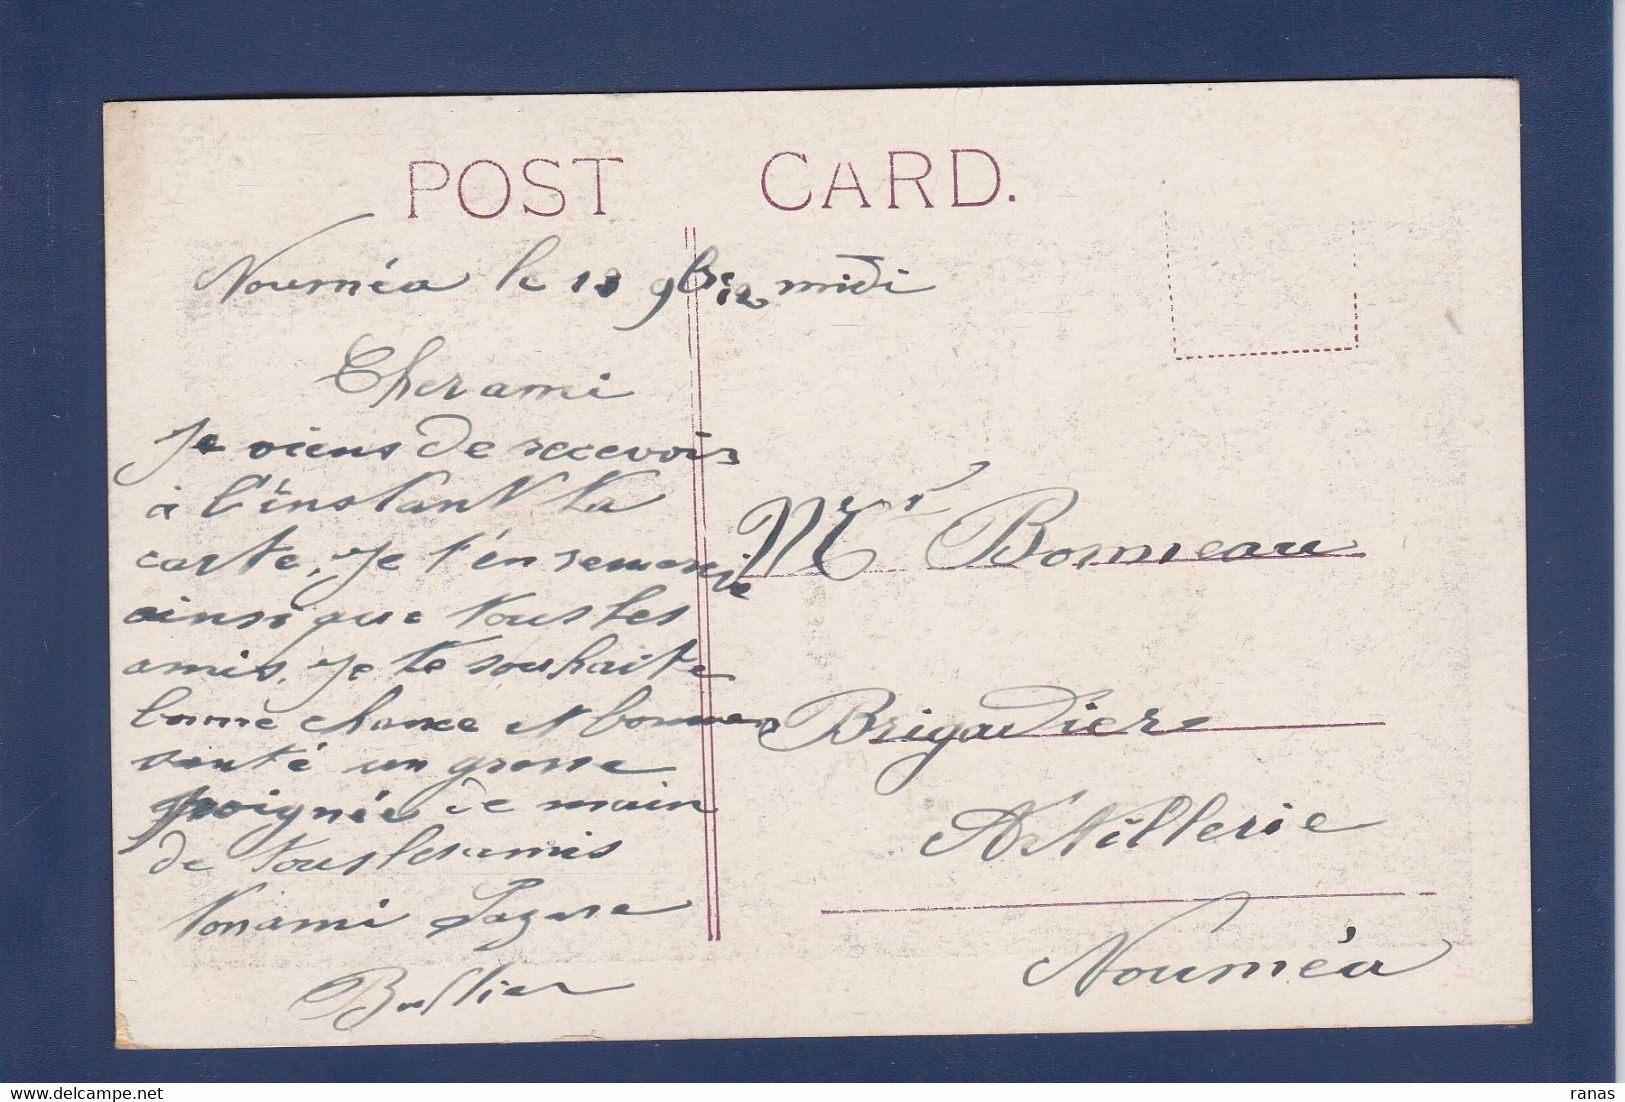 POST CARD.
Nouméa le 18 9bre 12 midi
Cher ami
Je viens de recevoir
à l'instant ta
carte, Je t'en remercie
ainsi que tous les
amis, Je te souhaite
bonne chance et bonne
santé un grosse
poignée de main
de tous les amis
ton ami
Mr Bonneau
Brigadier
Artillerie
Nouméa
ranas